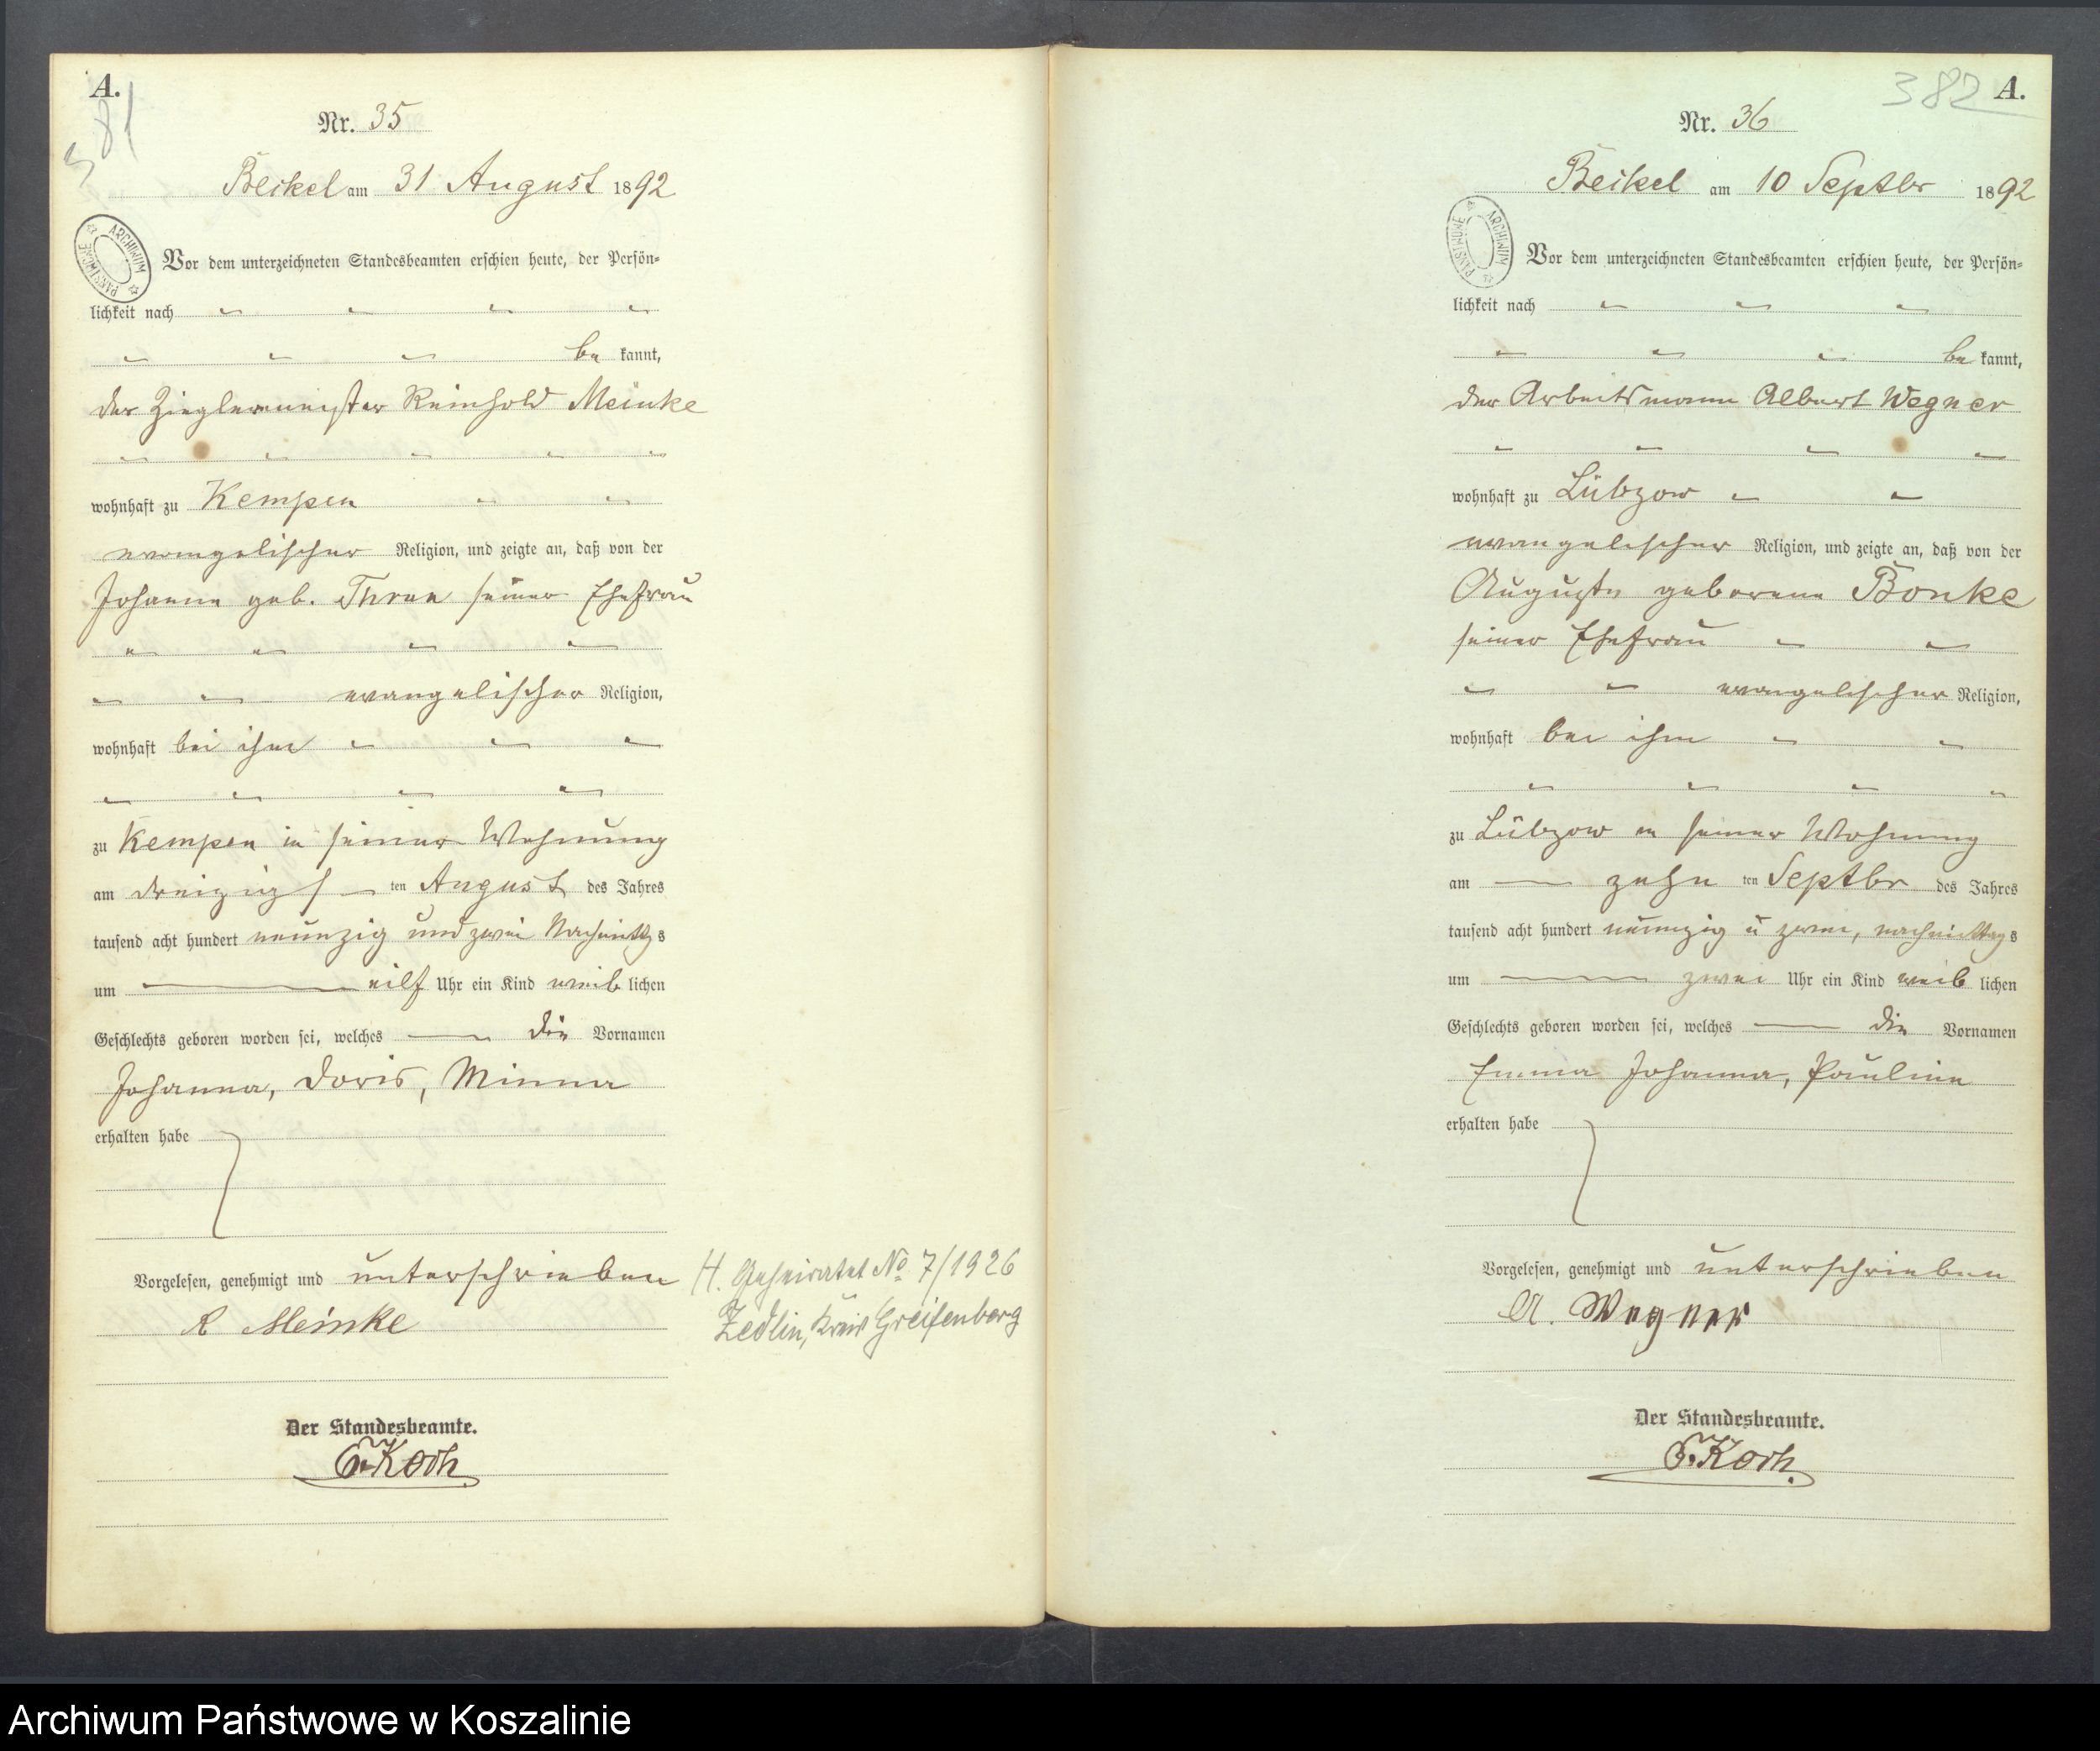 A.
381
Nr. 35
Beikel am 31 August 1892
ARCHIWUM PAŃSTWOWE
Vor dem unterzeichneten Standesbeamten erschien heute, der Persön-
lichkeit nach
be kannt,
der Zieglermeister Reinhold Meinke
wohnhaft zu Kempen
evangelischer Religion, und zeigte an, daß von der
Johanne geb. seiner Ehefrau
evangelischer Religion,
wohnhaft bei ihm
zu Kempen in seiner Wohnung
am dreizigs ten August des Jahres
tausend acht hundert neunzig und zwei Nachmittags
um eilf Uhr ein Kind weib lichen
Geschlechts geboren worden sei, welches die Vornamen
Johanna, Doris, Minna
erhalten habe
Vorgelesen, genehmigt und unterschrieben
R Meinke
H. Geheiratet No 7/1926
Zedlin, Kreis Greifenberg
Der Standesbeamte.
Koch
382 A.
Nr. 36
Beikel am 10 Septbr 1892
ARCHIWUM PAŃSTWOWE
Vor dem unterzeichneten Standesbeamten erschien heute, der Persön-
lichkeit nach
be kannt,
der Arbeitsmann Albert Wegner
wohnhaft zu Lübzow
evangelischer Religion, und zeigte an, daß von der
Auguste geborene Bonke
seiner Ehefrau
evangelischer Religion,
wohnhaft bei ihm
zu Lübzow in seiner Wohnung
am zehn ten Septbr des Jahres
tausend acht hundert neunzig u zwei, nachmittags
um zwei Uhr ein Kind weib lichen
Geschlechts geboren worden sei, welches die Vornamen
Emma Johanna, Pauline
erhalten habe
Vorgelesen, genehmigt und unterschrieben
A. Wegner
Der Standesbeamte.
Koch.
Archiwum Państwowe w Koszalinie